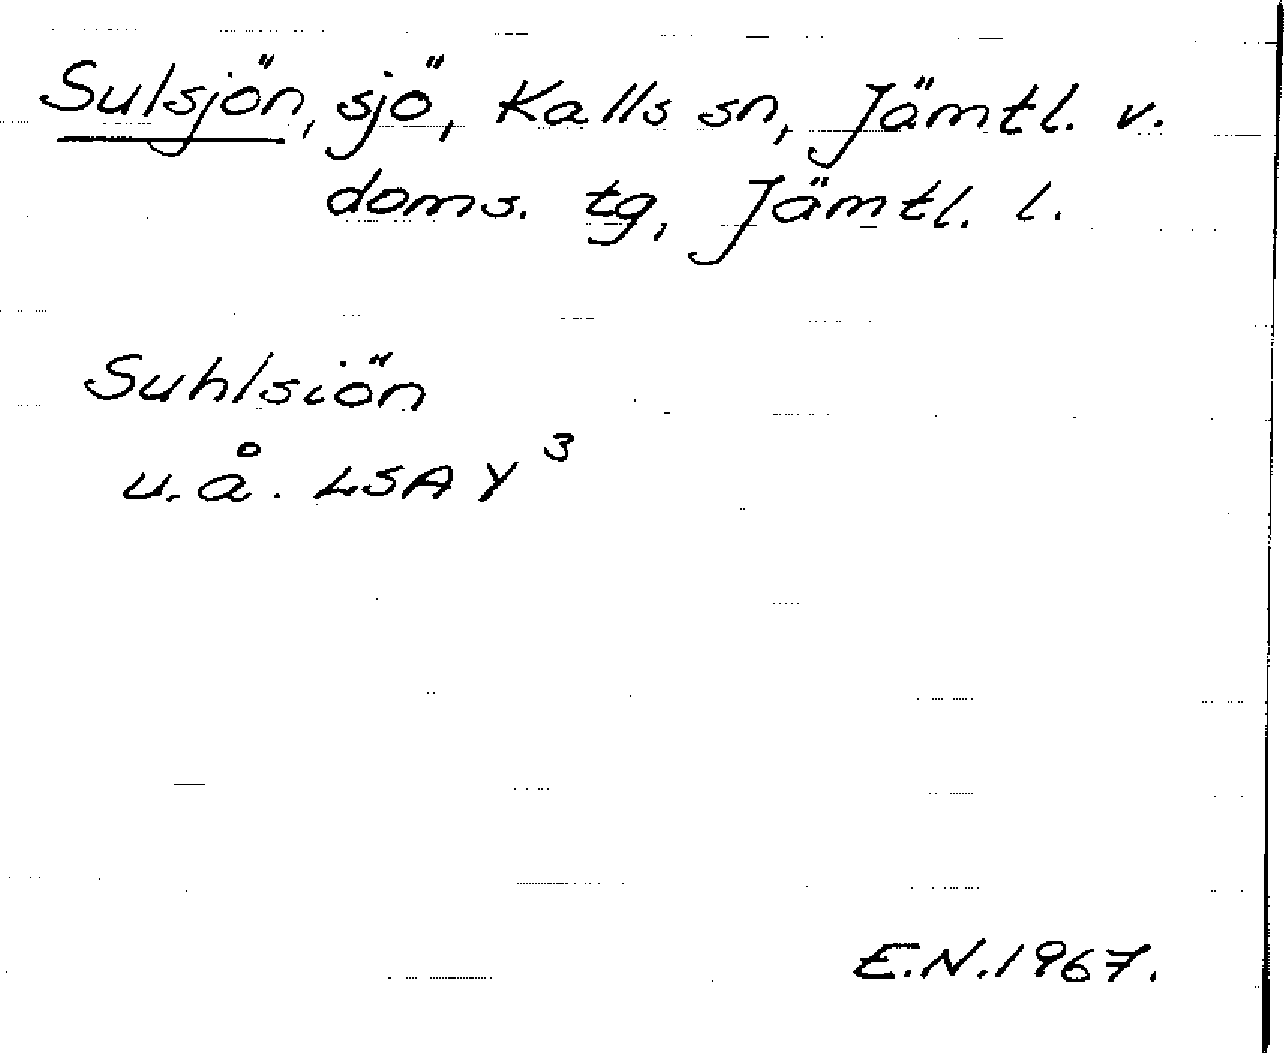 Sulsjön, sjö, Kalls sn, Jämtl. v.
doms. tg, Jämtl. l.
Suhlsiön
u.å. LSA Y³
E.N.1967.